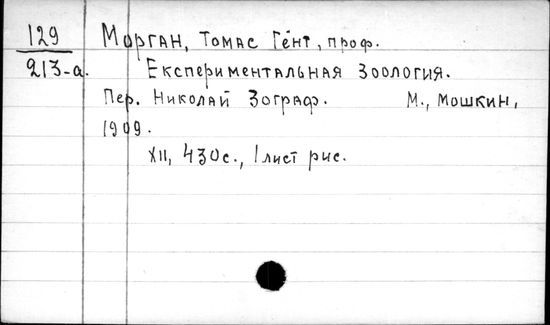 129 Морган, Томас Гент, проф.
213-а. Експериментальная зоология.
Пер. Николай Зограф. М., Мошкин,
1909.
XII, 430с., 1 лист рис.